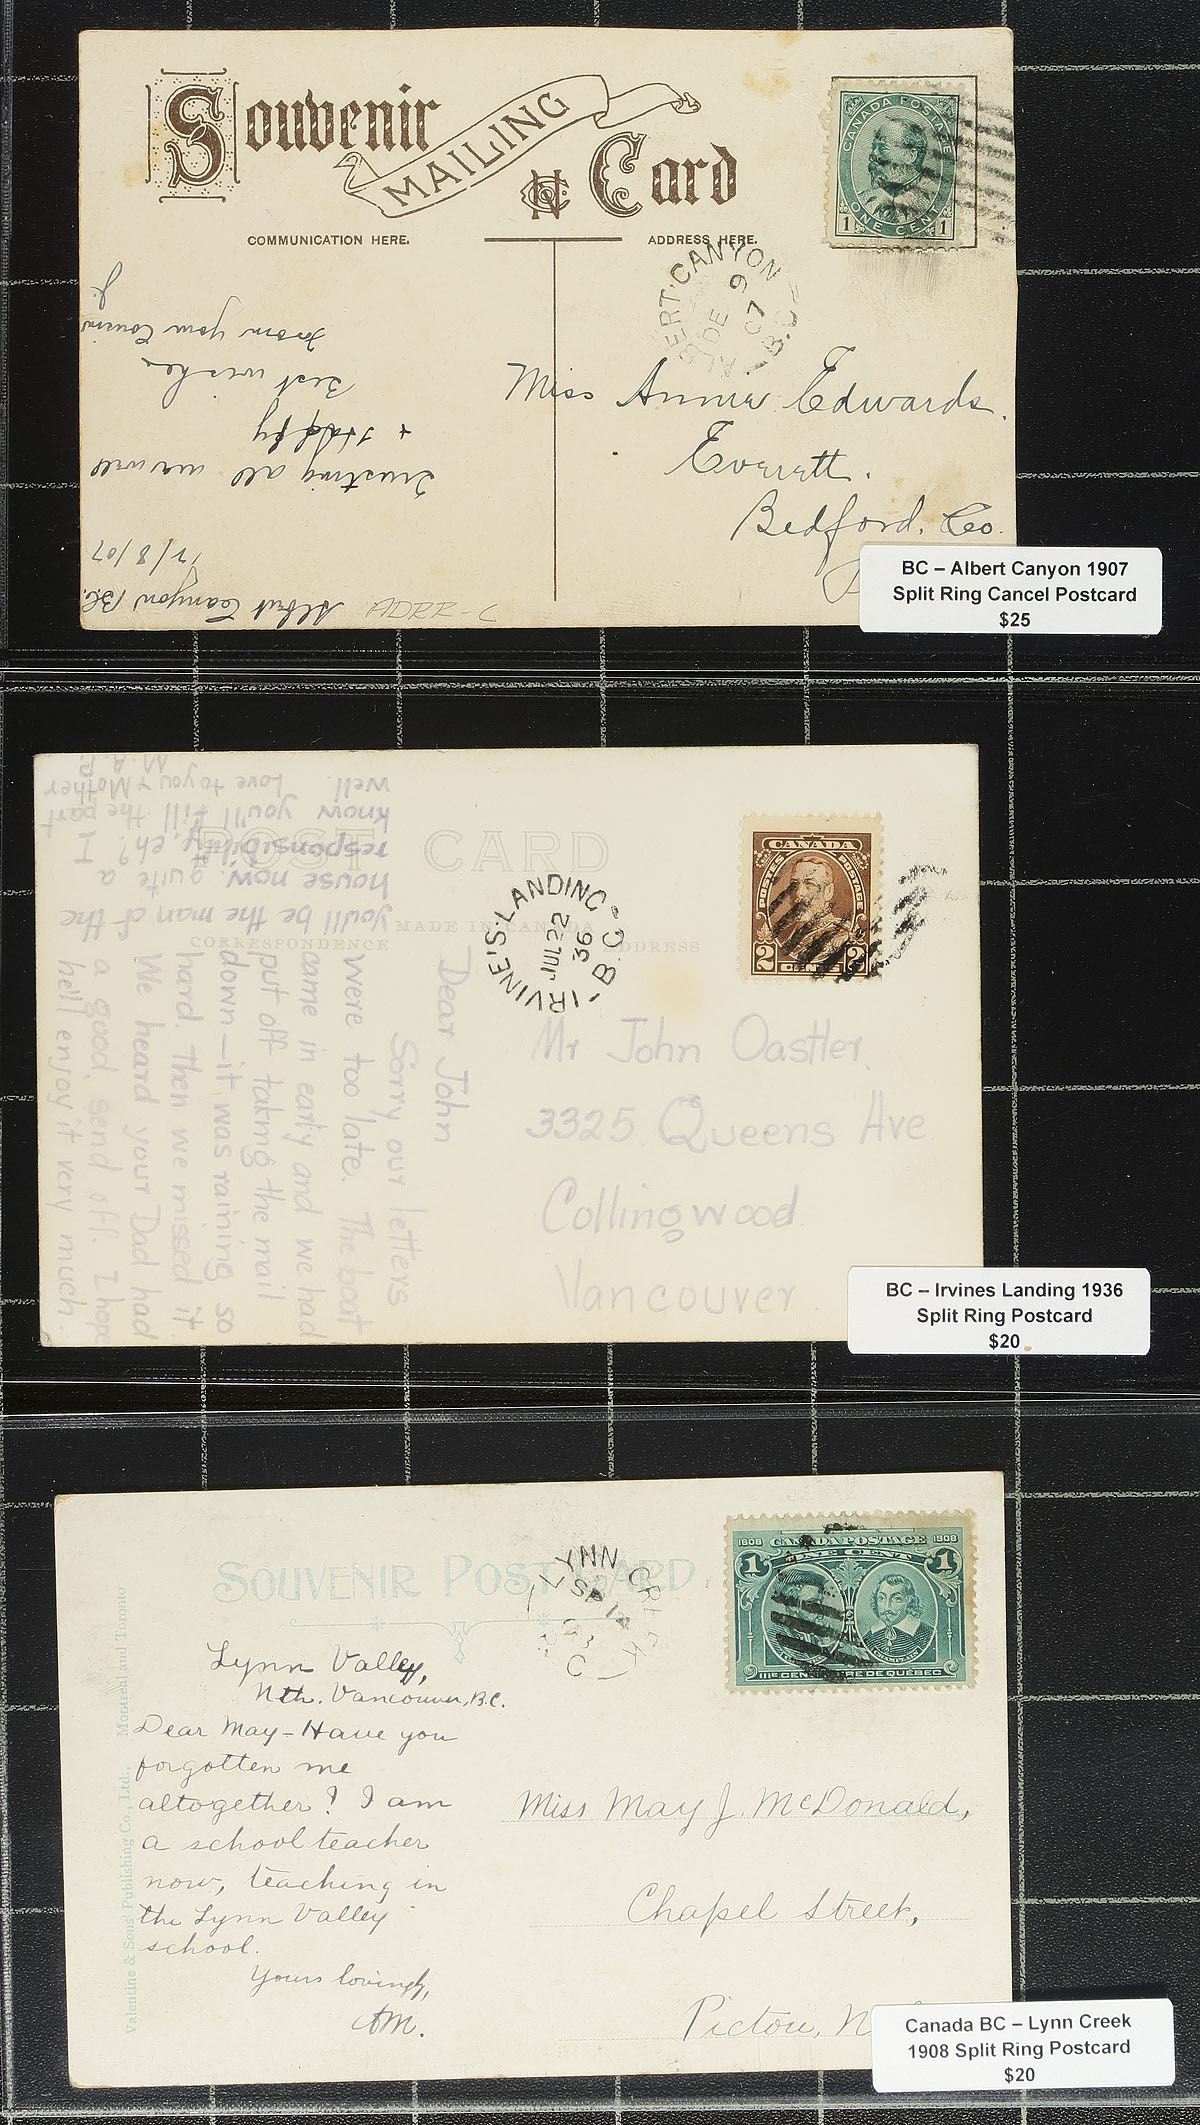 Souvenir
MAILING
Card
COMMUNICATION HERE.
ADDRESS HERE.
CANADA POSTAGE
1 ONE CENT 1
BERT·CANYON
DE 9
07
B.C
Albert Canyon BC.
12/8/07
Trusting all are well
+ Happy
Best wishes
from your Cousin
J.
Miss Annie Edwards.
Everett.
Bedford. Co.
BC – Albert Canyon 1907
Split Ring Cancel Postcard
$25
POST CARD
MADE IN CANADA
CORRESPONDENCE
ADDRESS
CANADA
POSTES POSTAGE
2 CENTS 2
IRVINE'S·LANDING
JUL 22
36
B.C.
Dear John
Sorry our letters
were too late. The boat
came in early and we had
put off taking the mail
down – it was raining so
hard. then we missed it.
We heard your Dad had
a good send off. I hope
he'll enjoy it very much.
you'll be the man of the
house now. quite a
responsibility, eh? I
know you'll fill the part
well. Love to you & Mother
M.A.P.
Mr John Oastler.
3325 Queens Ave
Collingwood.
Vancouver.
BC – Irvines Landing 1936
Split Ring Postcard
$20
SOUVENIR POST CARD
1608 CANADA POSTAGE 1908
1 ONE CENT 1
CHAMPLAIN
IIIe CENTENAIRE DE QUÉBEC
LYNN CREEK
C
Valentine & Sons' Publishing Co., Ltd., Montreal and Toronto
Lynn Valley,
Nth. Vancouver, B.C.
Dear May – Have you
forgotten me
altogether? I am
a school teacher
now, teaching in
the Lynn Valley
school.
Yours lovingly,
AM.
Miss May J. McDonald,
Chapel Street,
Pictou, N.
Canada BC – Lynn Creek
1908 Split Ring Postcard
$20